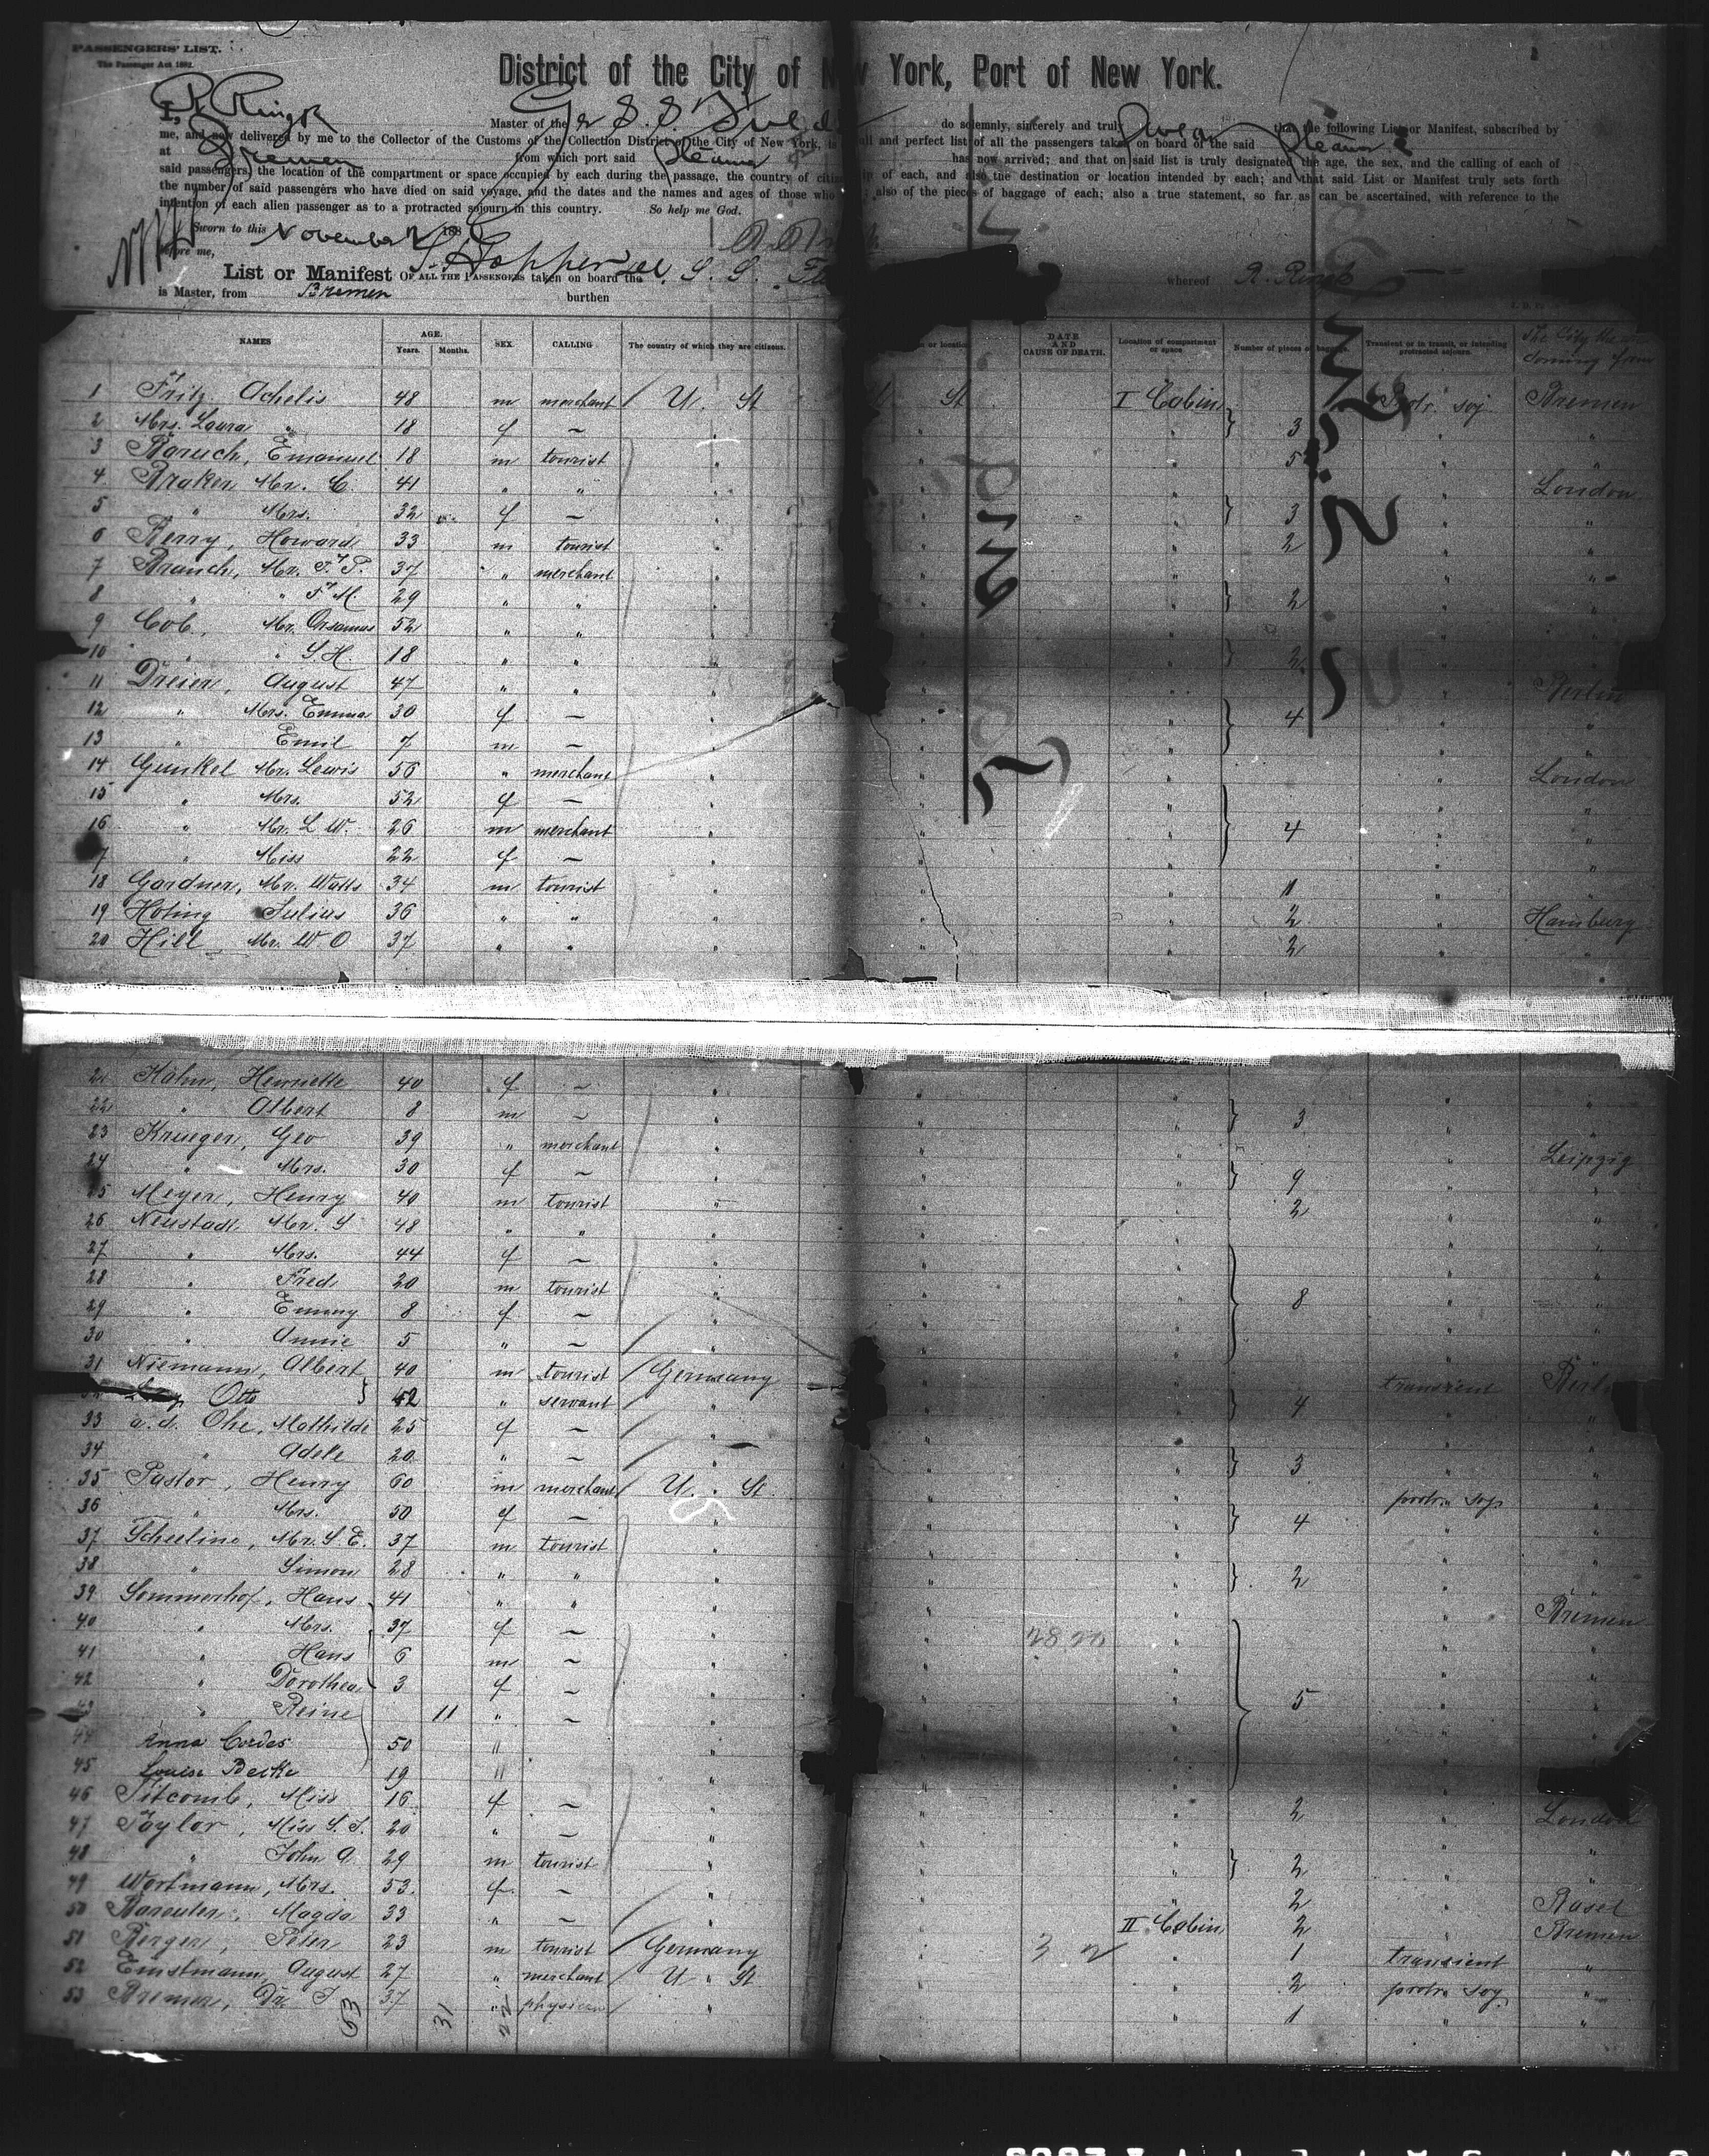 PASSENGERS' LIST.
The Passenger Act 1882.
District of the City of New York, Port of New York.
I, R. Ringk Master of the Ger S. S. Fulda do solemnly, sincerely and truly swear that the following List or Manifest, subscribed by
me, and now delivered by me to the Collector of the Customs of the Collection District of the City of New York, is a full and perfect list of all the passengers taken on board of the said Steamer
at Bremen from which port said Steamer has now arrived; and that on said list is truly designated the age, the sex, and the calling of each of
said passengers, the location of the compartment or space occupied by each during the passage, the country of citizenship of each, and also the destination or location intended by each; and that said List or Manifest truly sets forth
the number of said passengers who have died on said voyage, and the dates and the names and ages of those who died; also of the pieces of baggage of each; also a true statement, so far as can be ascertained, with reference to the
intention of each alien passenger as to a protracted sojourn in this country. So help me God.
Sworn to this November 188
before me,
List or Manifest OF ALL THE PASSENGERS taken on board the S. S. whereof R. Ringk
is Master, from Bremen burthen
NAMES AGE. Years. Months. SEX. CALLING The country of which they are citizens. DATE AND CAUSE OF DEATH. Location of compartment or space Number of pieces of baggage. Transient or in transit, or intending protracted sojourn. The City
coming from
1 Fritz Achelis 48 m merchant U. St St I Cabin Protr. soj Bremen
2 Mrs. Laura " 18 f ~ " " } 3 " "
3 Baruch, Emanuel 18 m tourist " " 5 " "
4 Braker Mr. C. 41 " " " " " London
5 " Mrs. 32 f ~ " " } 3 " "
6 Berry, Howard 33 m tourist " " 2 " "
7 Branch, Mr. T. P. 37 " merchant " " " "
8 " " F M. 29 " " " " } 2 " "
9 Cob, Mr. Orsamus 52 " " " " " "
10 " " S. H. 18 " " " " } 2 " "
11 Dreier, August 47 " " " " " Berlin
12 " Mrs. Emma 30 f ~ " " } 4 " "
13 " Emil 7 m ~ " " " "
14 Gunkel Mr. Lewis 56 " merchant " " " London
15 " Mrs. 52 f ~ " " " "
16 " Mr. L W. 26 m merchant " " } 4 " "
17 " Miss 22 f ~ " " " "
18 Gardner, Mr. Watts 34 m tourist " " 11 " "
19 Hoting Julius 36 " " " " 2 " Hamburg
20 Hill Mr. W O 37 " " " " 2 " "
21 Hahn, Henriette 40 f ~ " " " "
22 " Albert 8 m ~ " " } 3 " "
23 Krueger, Geo 39 " merchant " " " Leipzig
24 " Mrs. 30 f ~ " " } 9 " "
25 Meyer, Henry 40 m tourist " " 2 " "
26 Neustadt Mr. S 48 " " " " " "
27 " Mrs. 44 f ~ " " " "
28 " Fred 20 m tourist " " } 8 " "
29 " Emmy 8 f ~ " " " "
30 " Annie 5 " ~ " " " "
31 Niemann, Albert 40 m tourist Germany " transient Berlin
32 Otto 42 " servant " " } 4 " "
33 a. d. Ohe, Mathilde 25 f ~ " " " "
34 " Adele 20 " ~ " " } 3 " "
35 Pastor, Henry 60 m merchant U. St. " protr. soj. "
36 " Mrs. 50 f ~ " " } 4 " "
37 Scheeline, Mr. S. E. 37 m tourist " " " "
38 " Simon 28 " " " " } 2 " "
39 Sommerhof, Hans 41 " " " " " Bremen
40 " Mrs. 37 f ~ " " " "
41 " Hans 6 m ~ " " " "
42 " Dorothea 3 f ~ " " } 5 " "
43 " Reine 11 " ~ " " " "
44 Anna Cordes 50 " "
45 Louise Decke 19 " "
46 Titcomb, Miss 16 f ~ " " 2 " London
47 Taylor, Miss S. T. 20 " ~ " " " "
48 " John A. 29 m tourist " " } 2 " "
49 Wortmann, Mrs. 53 f ~ " " 2 " Basel
50 Bareuter, Magda 33 " ~ " II Cabin 2 " Bremen
51 Berger, Peter 23 m tourist Germany " 1 transient "
52 Ernstmann, August 27 " merchant U. St " 2 protr. soj. "
53 Bremer, Dr. J. 37 " physician " " 1 " "
63 31 22